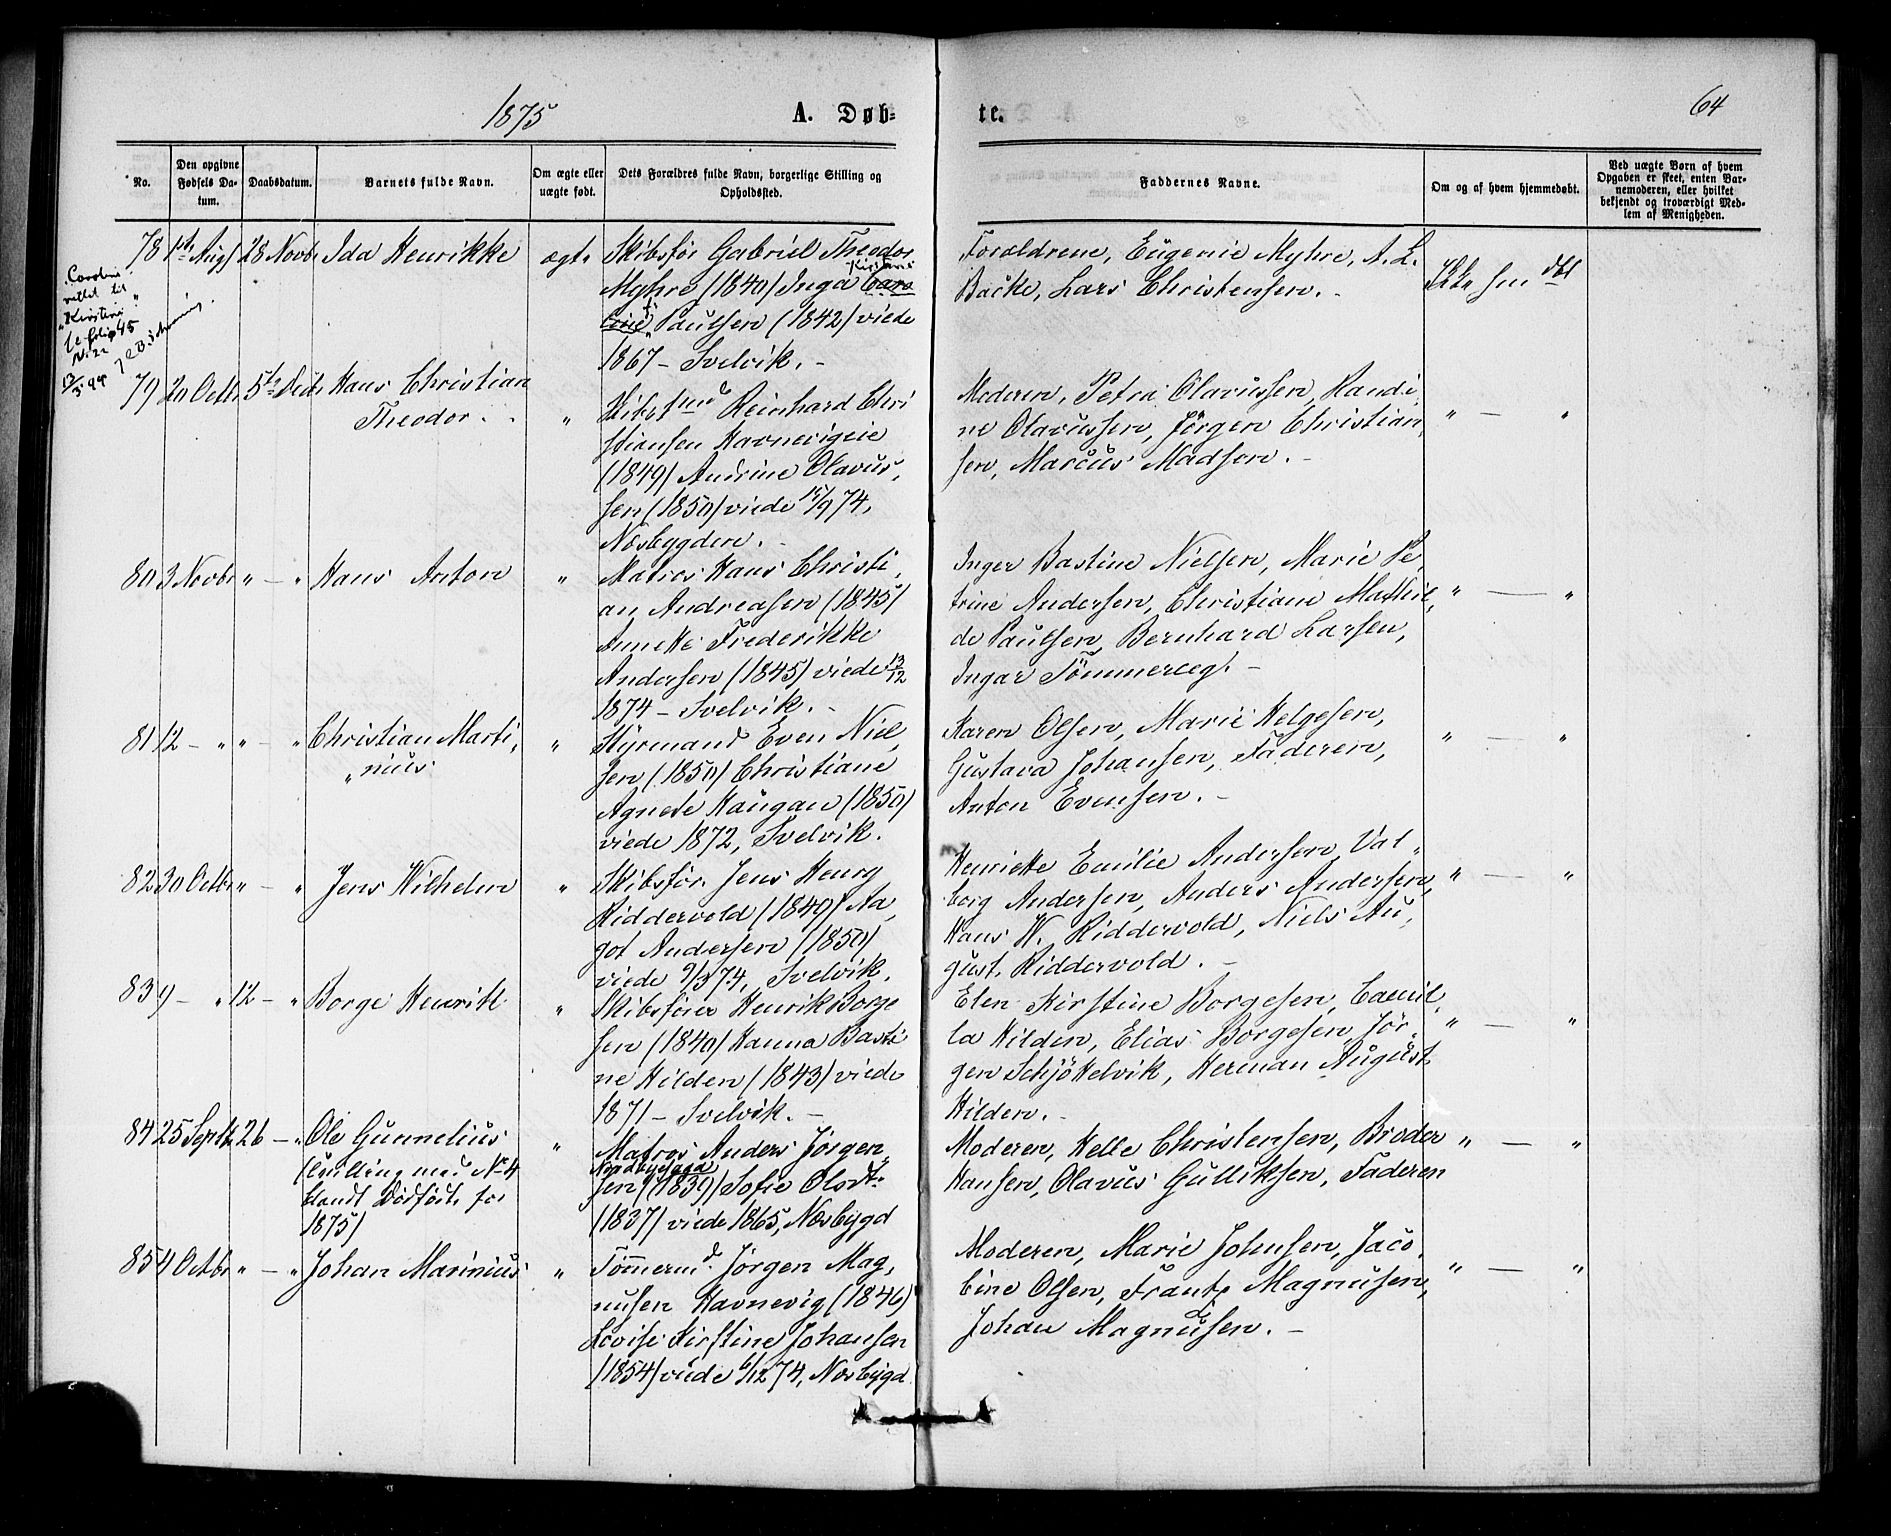 1875
A. Døb-
te.
64
No.
Den opgivne
Fødsels Da-
tum.
Daabsdatum.
Barnets fulde Navn.
Om ægte eller
uægte født.
Dets Forældres fulde Navn, borgerlige Stilling og
Opholdssted.
Faddernes Navne.
Om og af hvem hjemmedøbt.
Ved uægte Børn af hvem
Opgaven er skeet, enten Bar-
nemoderen, eller hvilket
bekjendt og troværdigt Med-
lem af Menigheden.
78 1ste Aug 28 Novb. Ida Henrikke ægte
Skibsfør Gabriel Theodor
Kirstine
Myhre (1840) Inga Caro
line Paulsen (1842) viede
1867 - Svelvik. -
Forældrene, Eugenie Myhre, A. L.
Backe, Lars Christensen. -
Ikke hm dbt
Caroline
rettet til
"Kirstine"
folio 45
N. 22
79 20 Octb. 5te Decb Hans Christian
Theodor. "
Reinhard Chri
stiansen Havnevigeie
(1849) Andrine Olavus,
sen (1850) viede 15/9 74,
Næsbygden. -
Moderen, Petra Olavussen, Randi,
ne Olavussen, Jörgen Christian,
sen, Marcus Madsen. -
" - "
80 3 Novbr " - " Hans Anton "
Matros Hans Christi,
an Andreasen (1845)
Annette Frederikke
Andersen (1845) viede 13/12
1874 - Svelvik. -
Inger Bastine Nielsen, Marie Pe,
trine Andersen, Christiane Mathil,
de Paulsen, Bernhard Larsen,
Ingar Tömmeregt. -
" - "
81 12 - " " - " Christian Marti,
"nius. "
Styrmand Even Niel,
sen (1850) Christiane
Agnete Haugan (1850)
viede 1872, Svelvik.
Karen Olsen, Marie Helgesen,
Gustava Johansen, Faderen,
Anton Evensen. -
" - "
82 30 Octbr " - " Jens Wilhelm "
Skibsfør. Jens Henry
Riddervold (1849) Aa,
got Andersen (1850)
viede 9/3 74, Svelvik.
Henriette Emilie Andersen, Val,
borg Andersen, Anders Andersen,
Hans W. Riddervold, Niels Au,
gust Riddervold. -
" - "
83 9 - " 12 - " Borge Henrik "
Skibsfører Henrik Borge
sen (1840) Hanna Basti
ne Hilden (1843) viede
1871 - Svelvik. -
Elen Kirstine Borgesen, Camil,
la Hilden, Elias Borgesen, Jör,
gen Schjökelvik, Herman August
Hilden. -
" - "
84 25 Septb. 26 - " Ole Gunnelius
(Tvilling med No 4
blandt Dødfødte for
1875) "
Matros Anders Jörgen,
Nordbye
sen (1839) Sofie Olsdt.
(1837) viede 1865, Næsbygd
Moderen, Helle Christensen, Broder
Hansen, Olavus Gulliksen, Faderen
" - "
85 4 Octbr " - " Johan Marinius "
Tömermd. Jörgen Mag,
nusen Havnevig (1846)
Lovise Kirstine Johansen
(1854) viede 6/12 74, Næsbygd
Moderen, Marie Johnsen, Jaco,
bine Olsen, Frantz Magnusen,
Johan Magnusen. -
" - "